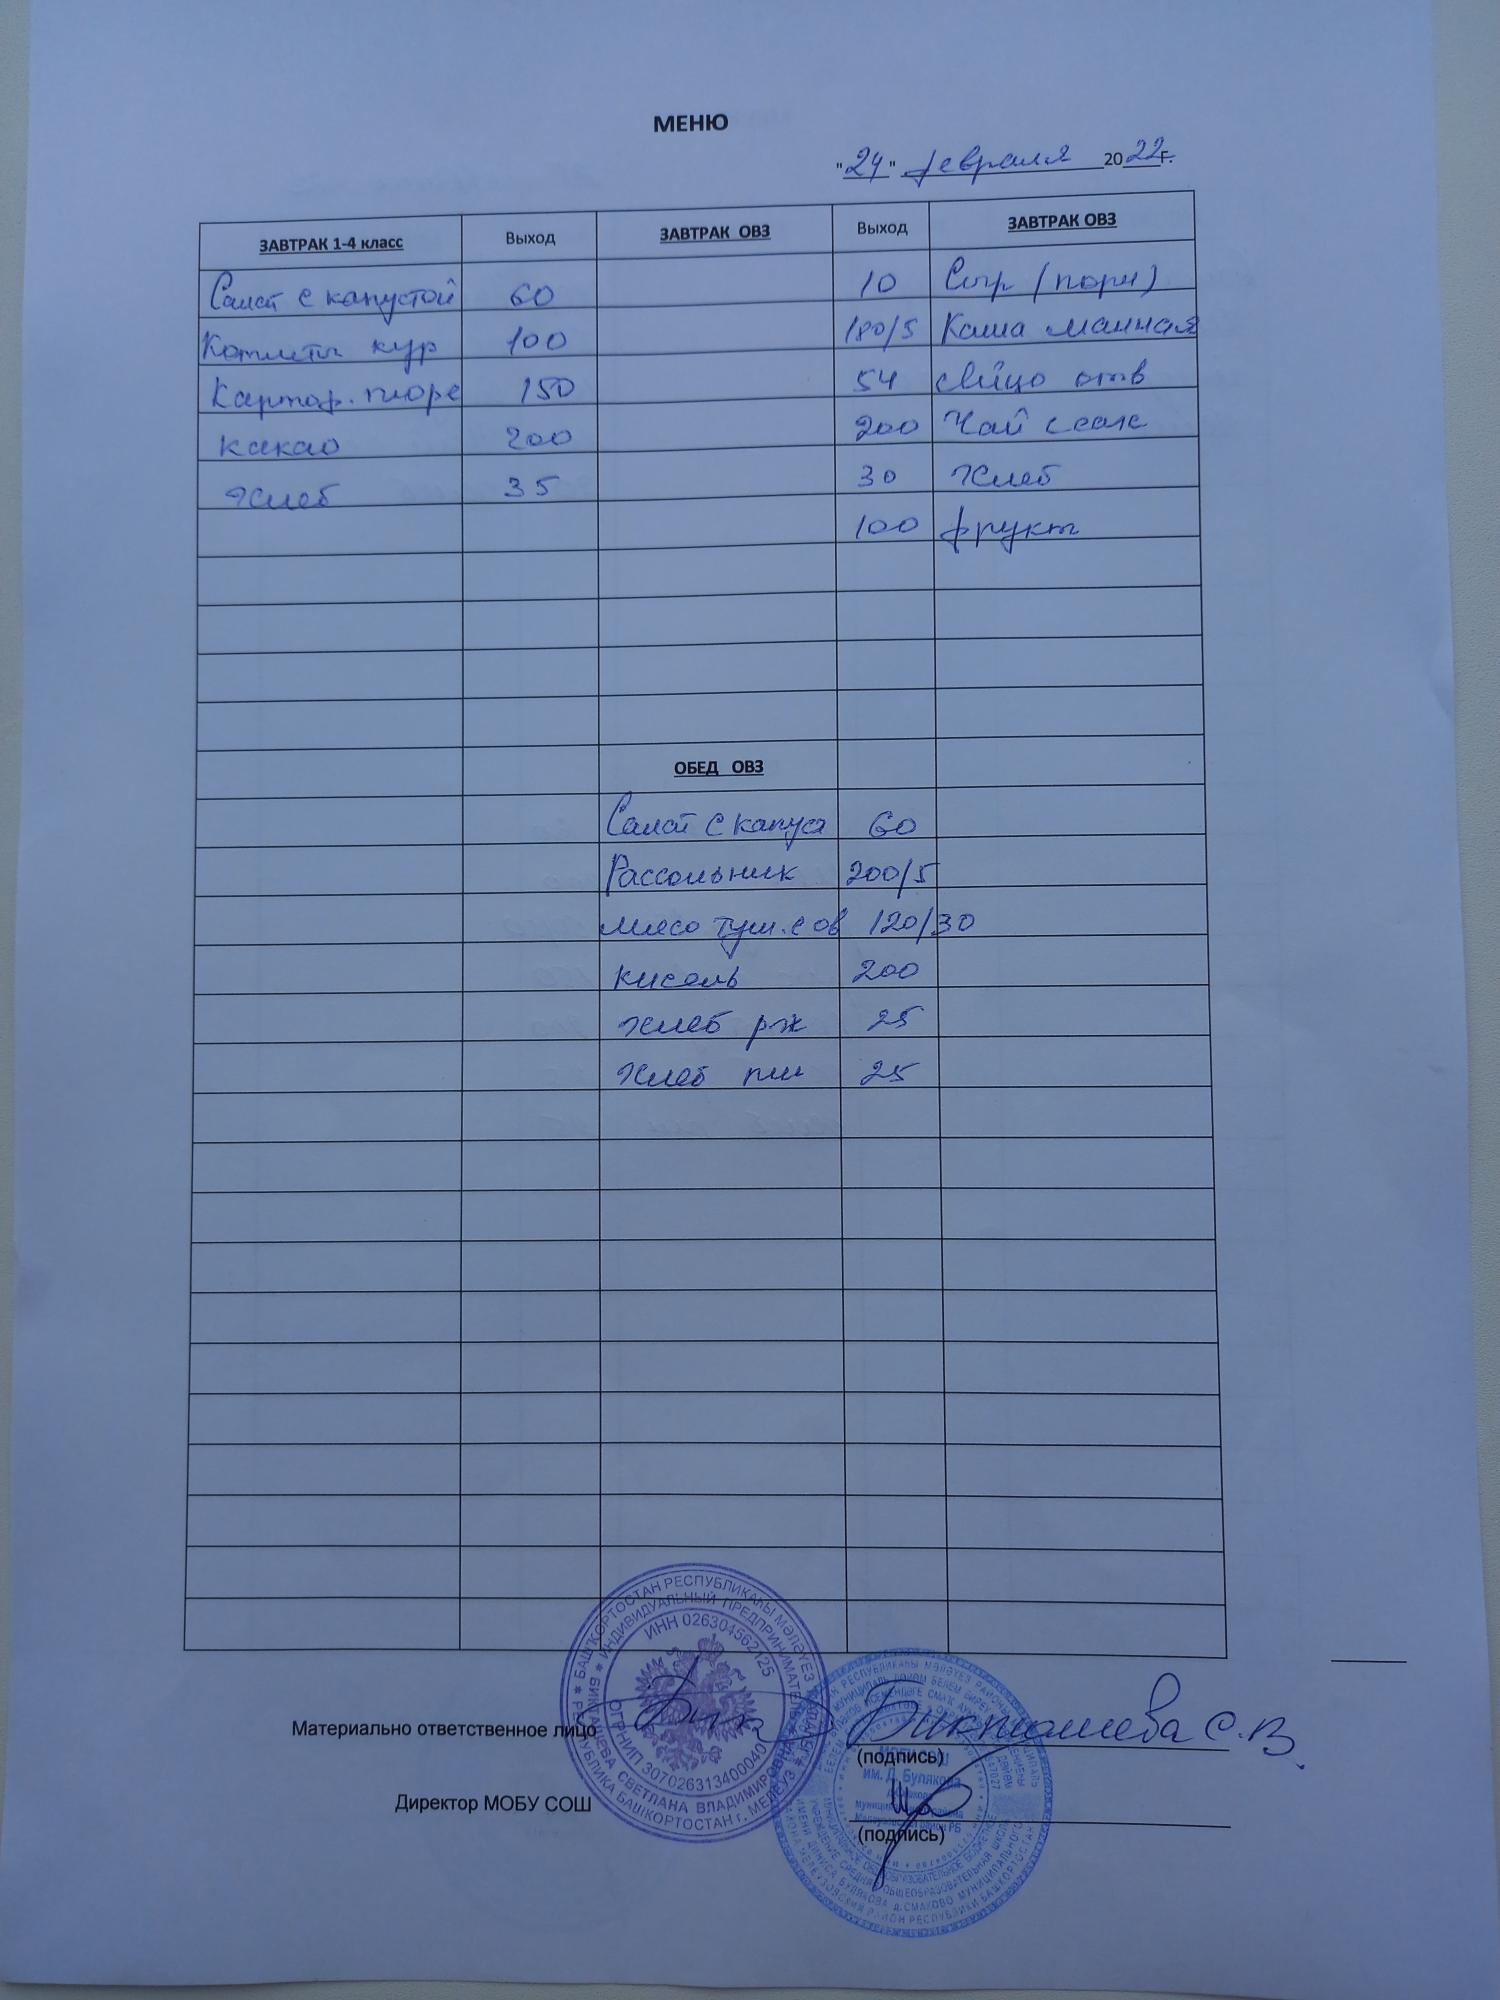 МЕНЮ
"24" февраля 2022г.
ЗАВТРАК 1-4 класс Выход ЗАВТРАК ОВЗ Выход ЗАВТРАК ОВЗ
Салат с капустой 60 10 Сыр (порц)
Котлеты кур 100 180/5 Каша манная
Картоф. пюре 150 54 яйцо отв
какао 200 200 Чай с сах
Хлеб 35 30 Хлеб
100 фрукт
ОБЕД ОВЗ
Салат с капуст 60
Рассольник 200/5
мясо туш. с ов 120/30
кисель 200
хлеб рж 25
хлеб пш 25
Материально ответственное лицо Бикташева С.В.
(подпись)
Директор МОБУ СОШ
(подпись)
БАШҠОРТОСТАН РЕСПУБЛИКАҺЫ МӘЛӘҮЕЗ
РЕСПУБЛИКА БАШКОРТОСТАН г. МЕЛЕУЗ
ИНДИВИДУАЛЬНЫЙ ПРЕДПРИНИМАТЕЛЬ
БИКТАШЕВА СВЕТЛАНА ВЛАДИМИРОВНА
ИНН 026304562125
ОГРНИП 307026313400040
им. Д. Булякова